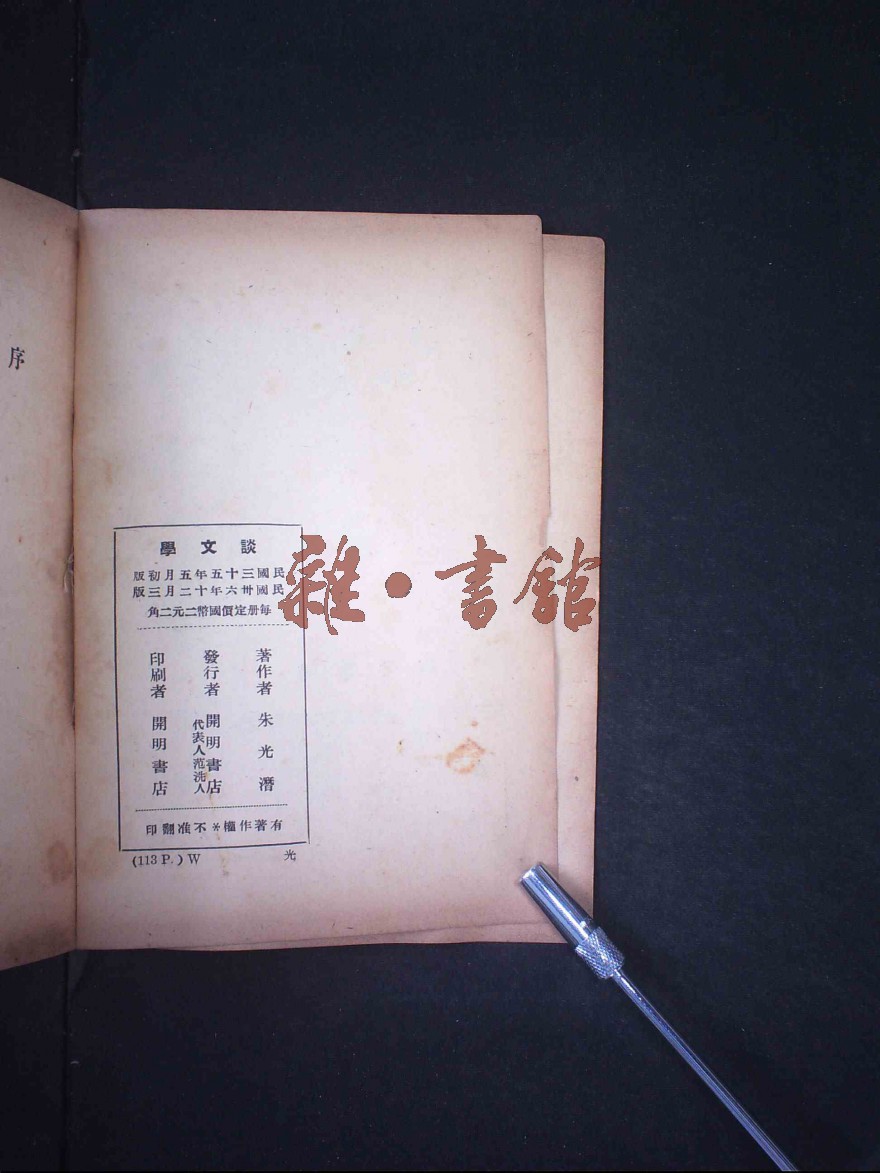 序
談文學
民國三十五年五月初版
民國卅六年十二月三版
每册定價國幣二元二角
著作者 朱光潛
發行者 開明書店
代表人范洗人
印刷者 開明書店
有著作權*不准翻印
(113 P.) W 光
雜·書館